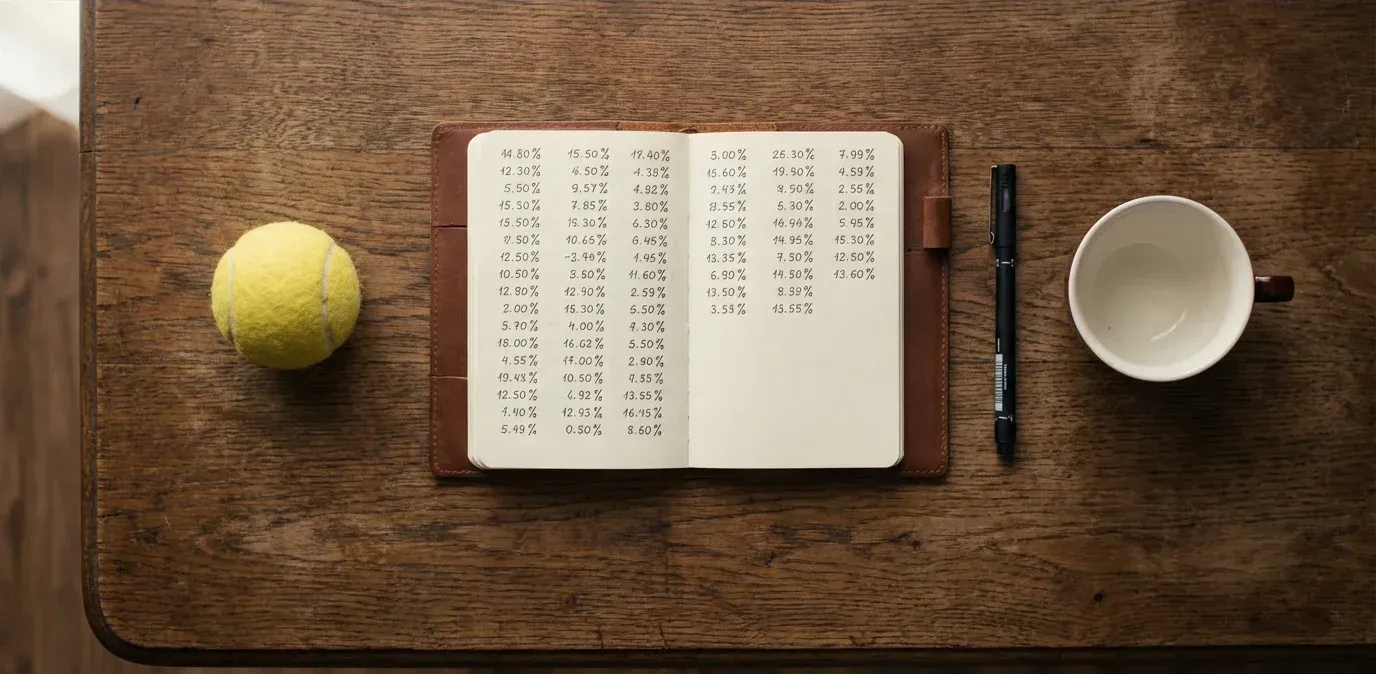 14.80% 15.50% 17.40%
12.30% 6.50% 1.39%
5.50% 9.57% 4.92%
15.30% 7.85% 3.80%
15.50% 15.30% 6.30%
7.50% 10.65% 6.45%
12.50% -3.40% 1.45%
10.50% 3.50% 11.60%
12.80% 12.90% 2.59%
2.00% 15.30% 5.50%
5.70% 4.00% 4.30%
18.00% 16.62% 5.50%
4.55% 17.00% 2.90%
19.48% 10.50%
12.50% 6.92% 13.55%
1.40% 12.93% 16.15%
5.49% 0.80% 8.60%
3.00% 26.30% 7.99%
15.60% 19.90% 4.59%
2.55%
5.30% 2.00%
12.50% 16.90% 5.95%
8.30% 14.95% 15.30%
13.35% 7.50% 12.50%
6.90% 14.50% 13.60%
13.50% 8.39%
3.55% 15.55%